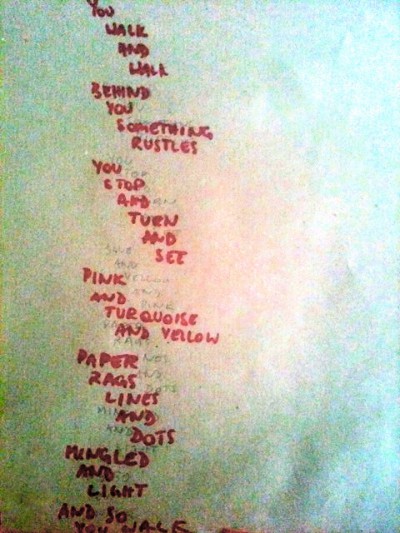 YOU
WALK
AND
WALK
BEHIND
YOU
SOMETHING
RUSTLES
YOU
STOP
AND
TURN
AND
SEE
PINK
AND
TURQUOISE
AND YELLOW
PAPER
RAGS
LINES
AND
DOTS
MINGLED
AND
LIGHT
AND SO
YOU WALK